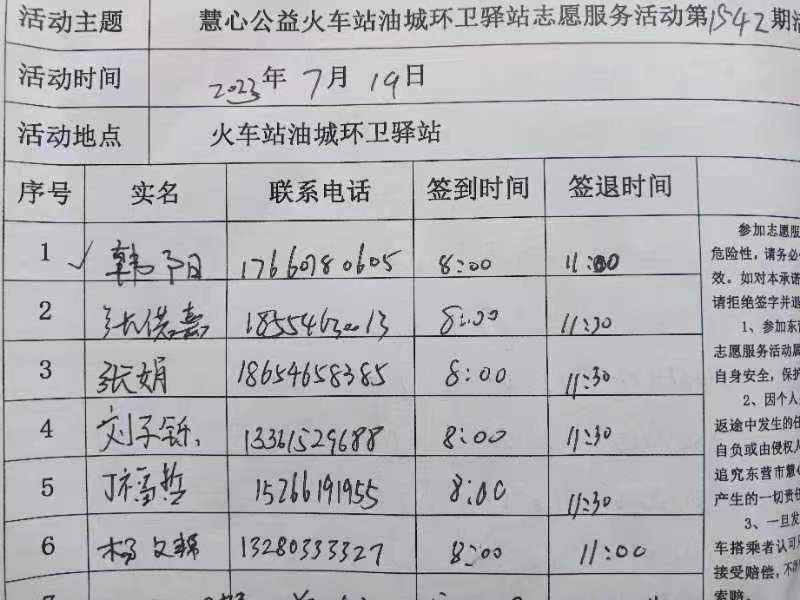 活动主题 慧心公益火车站油城环卫驿站志愿服务活动第1542期活
活动时间 2023年 7月 19日
活动地点 火车站油城环卫驿站
序号 实名 联系电话 签到时间 签退时间
1 ✓ 韩予阳 17660780605 8:00 11:00
2 张偌熹 18554630013 8:00 11:30
3 张娟 18654658385 8:00 11:30
4 刘子铄 13361529688 8:00 11:30
5 丁福哲 15266191955 8:00 11:30
6 杨文 13280333327 8:00 11:00
参加志愿服
危险性，请务必
效。如对本承诺
请拒绝签字并退
1、参加东
志愿服务活动属
自身安全，保护
2、因个人
返途中发生的任
自负或由侵权人
追究东营市慧
产生的一切责任
3、一旦发
车搭乘者认可
接受赔偿，不
索赔。